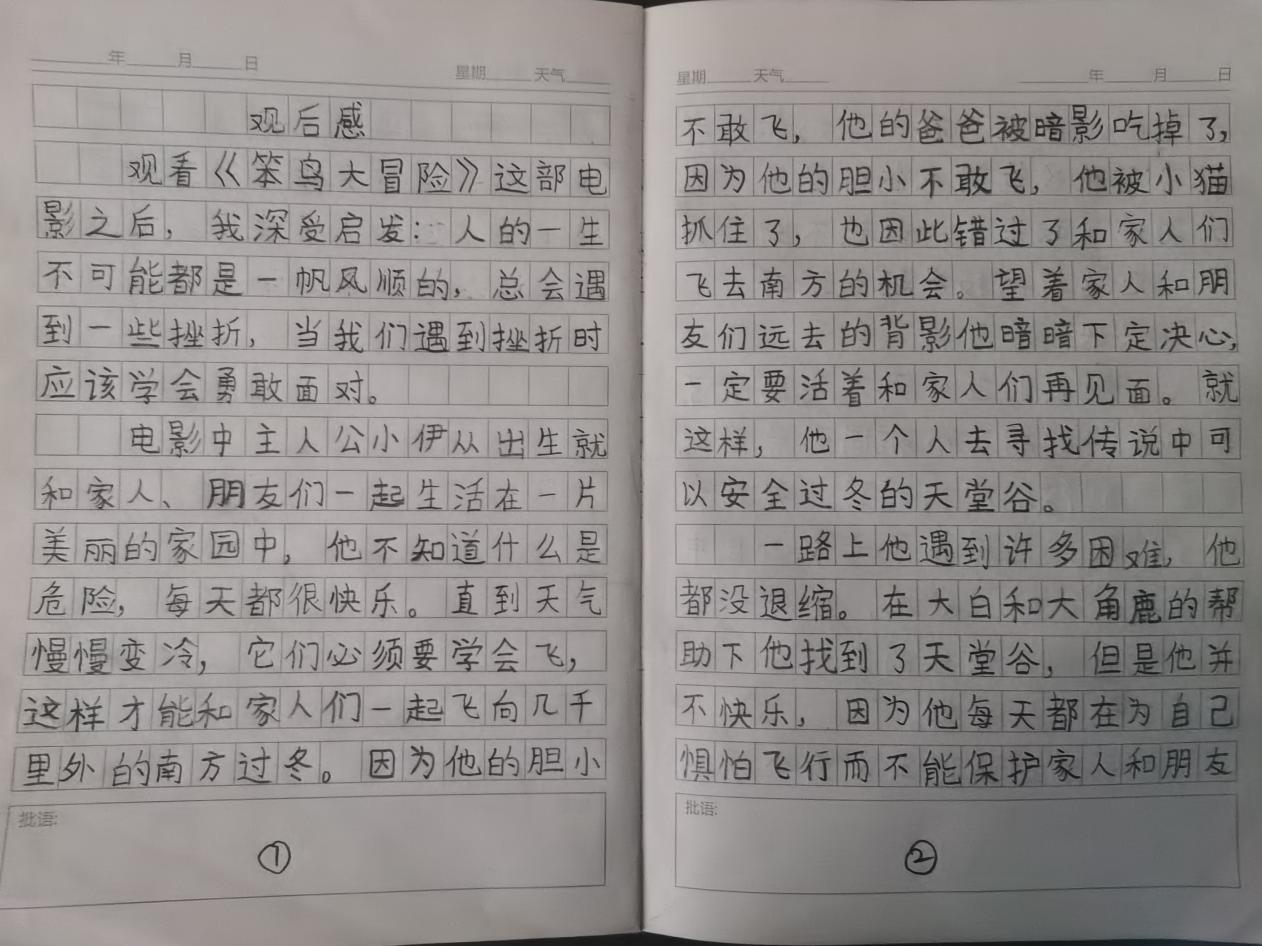 年 月 日
星期 天气
观后感
观看《笨鸟大冒险》这部电
影之后,我深受启发:人的一生
不可能都是一帆风顺的,总会遇
到一些挫折,当我们遇到挫折时
应该学会勇敢面对。
电影中主人公小伊从出生就
和家人、朋友们一起生活在一片
美丽的家园中,他不知道什么是
危险,每天都很快乐。直到天气
慢慢变冷,它们必须要学会飞,
这样才能和家人们一起飞向几千
里外的南方过冬。因为他的胆小
批语:
①
星期 天气
年 月 日
不敢飞,他的爸爸被暗影吃掉了,
因为他的胆小不敢飞,他被小猫
抓住了,也因此错过了和家人们
飞去南方的机会。望着家人和朋
友们远去的背影他暗暗下定决心,
一定要活着和家人们再见面。就
这样,他一个人去寻找传说中可
以安全过冬的天堂谷。
一路上他遇到许多困难,他
都没退缩。在大白和大角鹿的帮
助下他找到了天堂谷,但是他并
不快乐,因为他每天都在为自己
惧怕飞行而不能保护家人和朋友
批语:
②